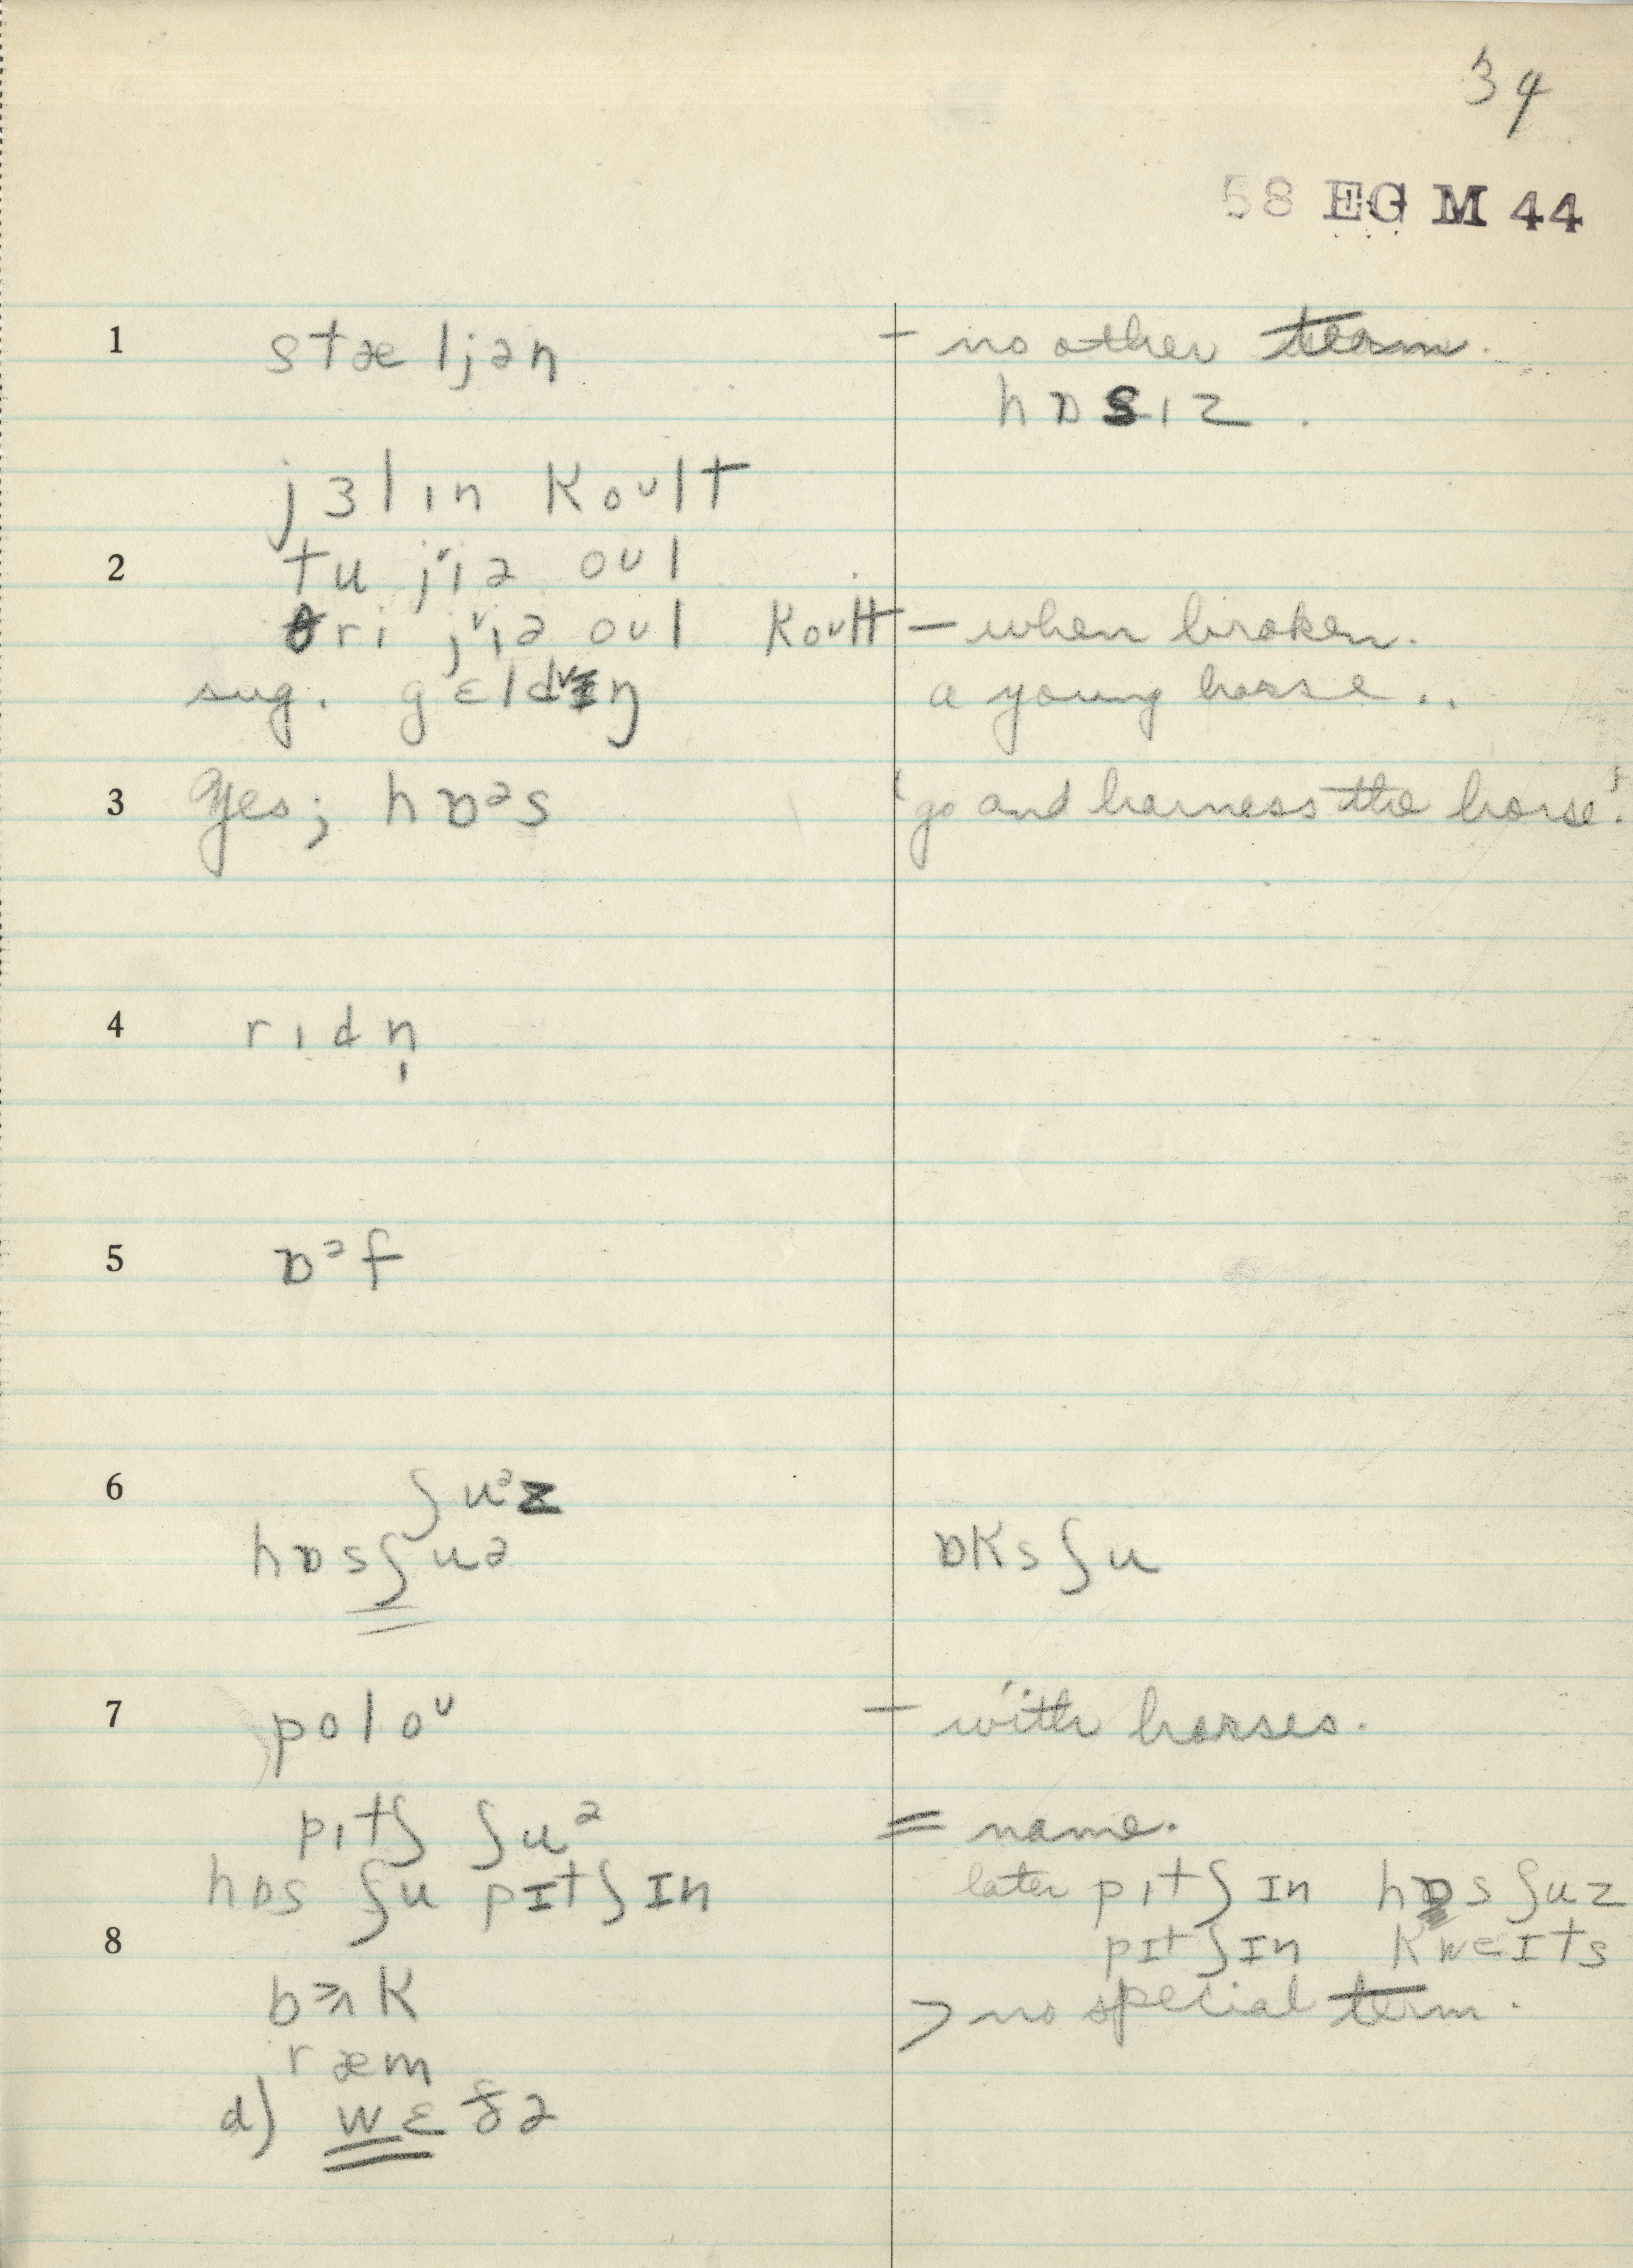 34
58 EG M 44
1 stæljən – no other term.
hɒsɪz.
jɜlɪn koʊlt
2 tu jᵛiə oʊl
θri jᵛiə oʊl koʊlt – when broken.
sug. gɛldᵛɪŋ a young horse..
3 Yes; hɒᵊs 'go and harness the horse'.
4 rɪdn̩
5 ɒᵊf
6 ʃuᵊz
hɒsʃuə ɒksʃu
7 poloᵛ – with horses.
pɪtʃ ʃuᵊ = name.
hɒs ʃu pɪtʃɪn later pɪtʃɪn hɒsʃuz
8 pɪtʃɪn kweɪts
bʌk > no special term.
ræm
d) wɛðə